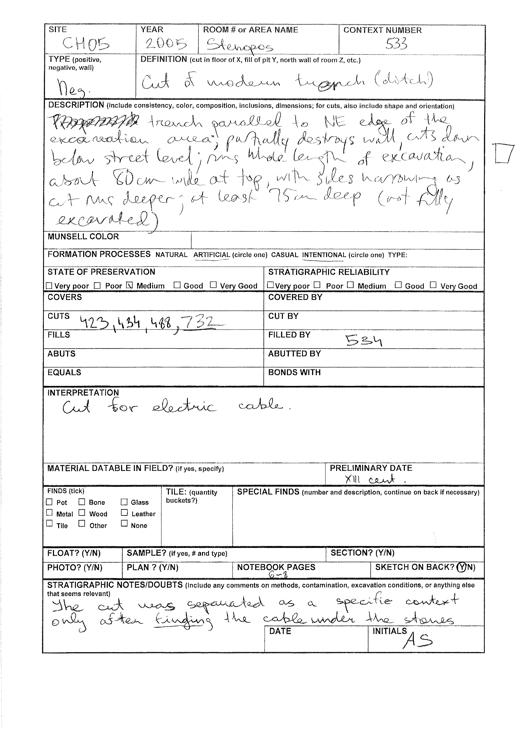 SITE YEAR ROOM # or AREA NAME CONTEXT NUMBER
CH05 2005 Stenopos 533
TYPE (positive, negative, wall) DEFINITION (cut in floor of X, fill of pit Y, north wall of room Z, etc.)
Neg. Cut of modern trench (ditch)
DESCRIPTION (include consistency, color, composition, inclusions, dimensions; for cuts, also include shape and orientation)
trench parallel to NE edge of the
excavation area; partially destroys wall, cuts down
below street level; runs whole length of excavation,
about 80cm wide at top, with sides narrowing as
cut runs deeper; at least 75cm deep (not fully
excavated)
MUNSELL COLOR
FORMATION PROCESSES NATURAL ARTIFICIAL (circle one) CASUAL INTENTIONAL (circle one) TYPE:
STATE OF PRESERVATION STRATIGRAPHIC RELIABILITY
Very poor Poor Medium Good Very Good Very poor Poor Medium Good Very Good
COVERS COVERED BY
CUTS 423, 434, 488, 732 CUT BY
FILLS FILLED BY 534
ABUTS ABUTTED BY
EQUALS BONDS WITH
INTERPRETATION
Cut for electric cable.
MATERIAL DATABLE IN FIELD? (if yes, specify) PRELIMINARY DATE
XIII cent.
FINDS (tick) TILE: (quantity buckets?) SPECIAL FINDS (number and description, continue on back if necessary)
Pot Bone Glass
Metal Wood Leather
Tile Other None
FLOAT? (Y/N) SAMPLE? (if yes, # and type) SECTION? (Y/N)
PHOTO? (Y/N) PLAN ? (Y/N) NOTEBOOK PAGES SKETCH ON BACK? (Y/N)
6-8
STRATIGRAPHIC NOTES/DOUBTS (include any comments on methods, contamination, excavation conditions, or anything else
that seems relevant)
The cut was separated as a specific context
only after finding the cable under the stones
DATE INITIALS
AS